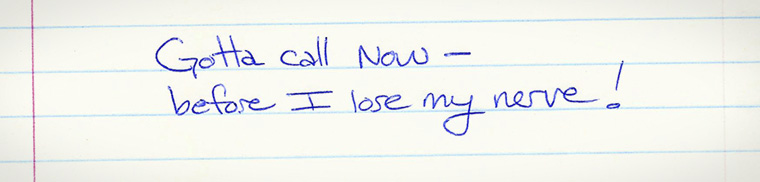 Gotta call Now –
before I lose my nerve!